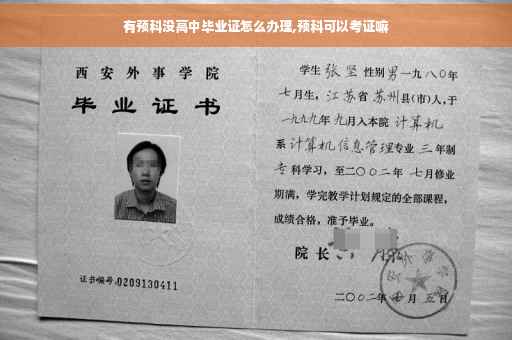 有预科没高中毕业证怎么办理,预科可以考证嘛
西安外事学院
毕业证书
证书编号:0209130411
学生 张坚 性别 男 一九八〇年
七月生, 江苏省 苏州 县(市)人,于
一九九九年 九月入本院 计算机
系 计算机信息管理 专业 三 年制
专科学习,至二〇〇二年 七月修业
期满,学完教学计划规定的全部课程,
成绩合格,准予毕业。
院长
二〇〇二年 月 五日